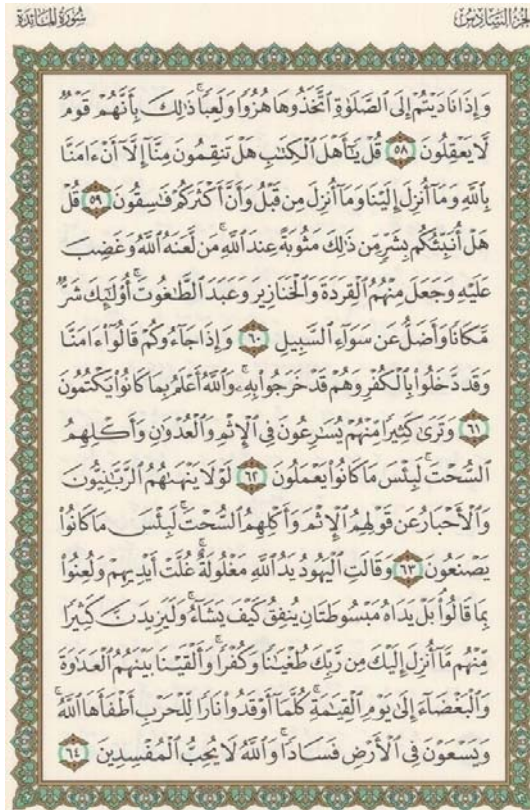 سُورَةُ المَائِدَة
الجُزْءُ السَّادِسُ
وَإِذَا نَادَيْتُمْ إِلَى ٱلصَّلَوٰةِ ٱتَّخَذُوهَا هُزُوًا وَلَعِبًا ۚ ذَٰلِكَ بِأَنَّهُمْ قَوْمٌ
لَّا يَعْقِلُونَ ٥٨ قُلْ يَٰٓأَهْلَ ٱلْكِتَٰبِ هَلْ تَنقِمُونَ مِنَّآ إِلَّآ أَنْ ءَامَنَّا
بِٱللَّهِ وَمَآ أُنزِلَ إِلَيْنَا وَمَآ أُنزِلَ مِن قَبْلُ وَأَنَّ أَكْثَرَكُمْ فَٰسِقُونَ ٥٩ قُلْ
هَلْ أُنَبِّئُكُم بِشَرٍّ مِّن ذَٰلِكَ مَثُوبَةً عِندَ ٱللَّهِ ۚ مَن لَّعَنَهُ ٱللَّهُ وَغَضِبَ
عَلَيْهِ وَجَعَلَ مِنْهُمُ ٱلْقِرَدَةَ وَٱلْخَنَازِيرَ وَعَبَدَ ٱلطَّٰغُوتَ ۚ أُو۟لَٰٓئِكَ شَرٌّ
مَّكَانًا وَأَضَلُّ عَن سَوَآءِ ٱلسَّبِيلِ ٦٠ وَإِذَا جَآءُوكُمْ قَالُوٓا۟ ءَامَنَّا
وَقَد دَّخَلُوا۟ بِٱلْكُفْرِ وَهُمْ قَدْ خَرَجُوا۟ بِهِۦ ۚ وَٱللَّهُ أَعْلَمُ بِمَا كَانُوا۟ يَكْتُمُونَ
٦١ وَتَرَىٰ كَثِيرًا مِّنْهُمْ يُسَٰرِعُونَ فِى ٱلْإِثْمِ وَٱلْعُدْوَٰنِ وَأَكْلِهِمُ
ٱلسُّحْتَ ۚ لَبِئْسَ مَا كَانُوا۟ يَعْمَلُونَ ٦٢ لَوْلَا يَنْهَىٰهُمُ ٱلرَّبَّٰنِيُّونَ
وَٱلْأَحْبَارُ عَن قَوْلِهِمُ ٱلْإِثْمَ وَأَكْلِهِمُ ٱلسُّحْتَ ۚ لَبِئْسَ مَا كَانُوا۟
يَصْنَعُونَ ٦٣ وَقَالَتِ ٱلْيَهُودُ يَدُ ٱللَّهِ مَغْلُولَةٌ ۚ غُلَّتْ أَيْدِيهِمْ وَلُعِنُوا۟
بِمَا قَالُوا۟ ۘ بَلْ يَدَاهُ مَبْسُوطَتَانِ يُنفِقُ كَيْفَ يَشَآءُ ۚ وَلَيَزِيدَنَّ كَثِيرًا
مِّنْهُم مَّآ أُنزِلَ إِلَيْكَ مِن رَّبِّكَ طُغْيَٰنًا وَكُفْرًا ۚ وَأَلْقَيْنَا بَيْنَهُمُ ٱلْعَدَٰوَةَ
وَٱلْبَغْضَآءَ إِلَىٰ يَوْمِ ٱلْقِيَٰمَةِ ۚ كُلَّمَآ أَوْقَدُوا۟ نَارًا لِّلْحَرْبِ أَطْفَأَهَا ٱللَّهُ ۚ
وَيَسْعَوْنَ فِى ٱلْأَرْضِ فَسَادًا ۚ وَٱللَّهُ لَا يُحِبُّ ٱلْمُفْسِدِينَ ٦٤